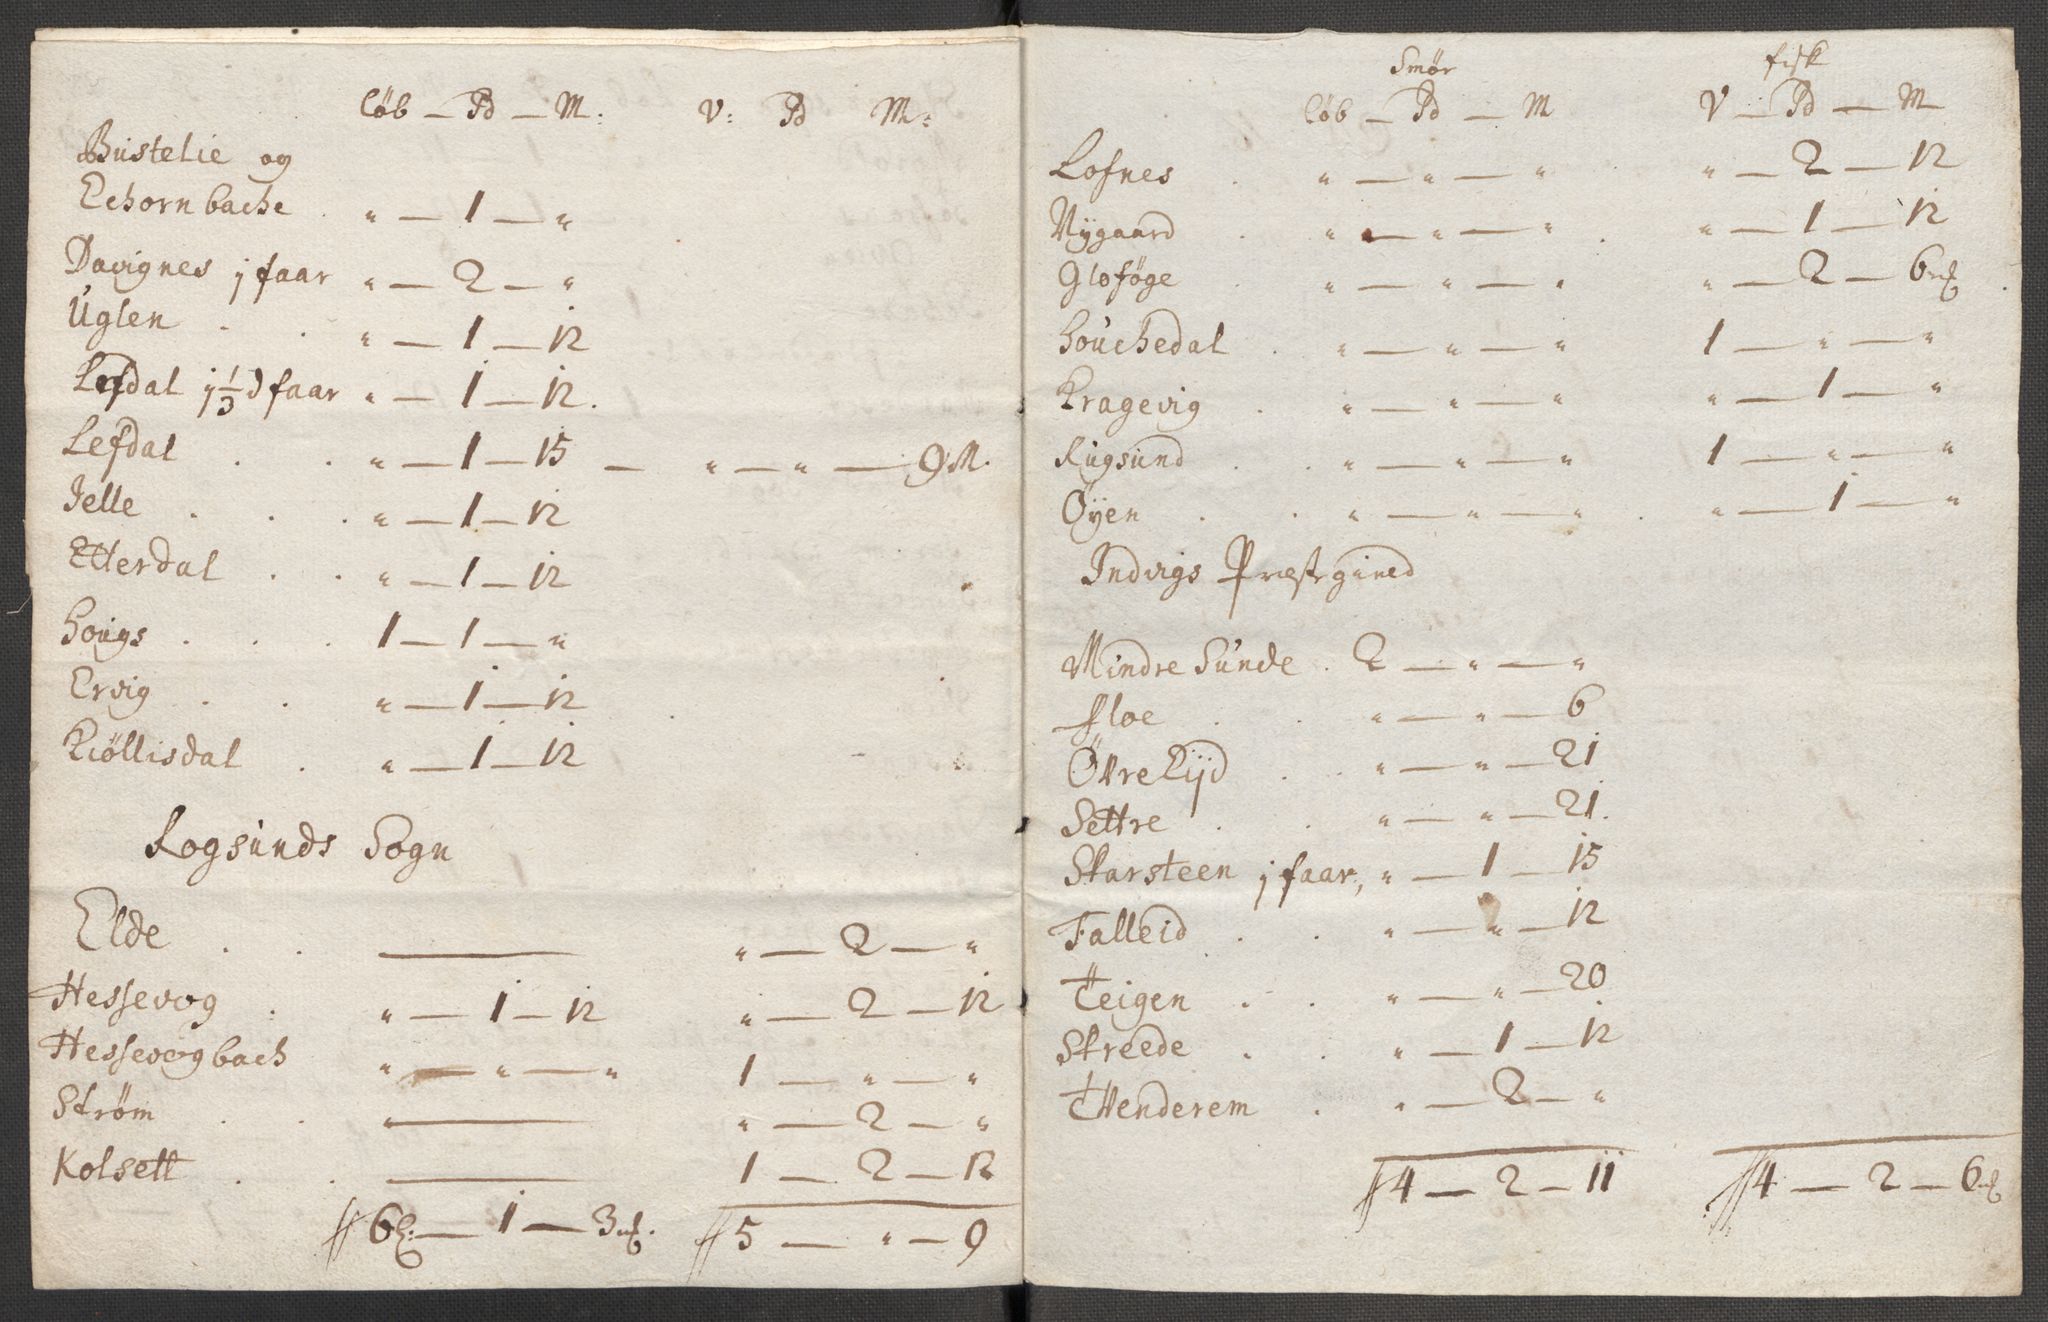 Löb — Pd — M: V: Pd M:
Bustelie og
Echornbache . " — 1 — "
Davignes j faar " — 2 — "
Uglen . . " — 1 — 12
Lefdal j 1/3 d faar " — 1 — 12.
Lefdal . . " — 1 — 15 — " — " — 9 M.
Ielle . . . " — 1 — 12
Etterdal . . " — 1 — 12
Hougs . . . 1 — 1 — "
Ervig . . " — 1 — 12
Kiöllisdal . " — 1 — 12
Rogsunds Sogn
Elde . . — " — 2 — "
Hessevog . " — 1 — 12 " — 2 — 12
Hessevogbach " — " — " 1 — " — "
Strøm . . " — " — 2 — "
Kolsett . . — 1 — 2 — 12
6 L: — 1 — 3 mk. 5 — " — 9
Smør fisk
Löb — Pd — M V — Pd — M
Lofnes . " — " — " " — 2 — 12
Nÿgaard . " — " — " . " — 1 — 12
Gloføge . " — " — " " — 2 — 6 mk
Houchedal . " — " — " 1 — " — "
Kragevig . " — " — " " — 1 — "
Rugsund . . " — " — " 1 — " — "
Öÿen . . " — " — " . " — 1 — "
Indvigs Præstegined
Mindre Sunde . 2 — " — "
Floe . . " — " — 6
Öttre Eijd . . " — " — 21
Settre . . " — " — 21.
Starsteen j faar, " — 1 — 15
Falleid . . " — " — 12
Teigen . . " — " — 20
Streede . . " — 1 — 12
Tenderem . " — 2 — "
4 — 2 — 11 4 — 2 — 6 mk